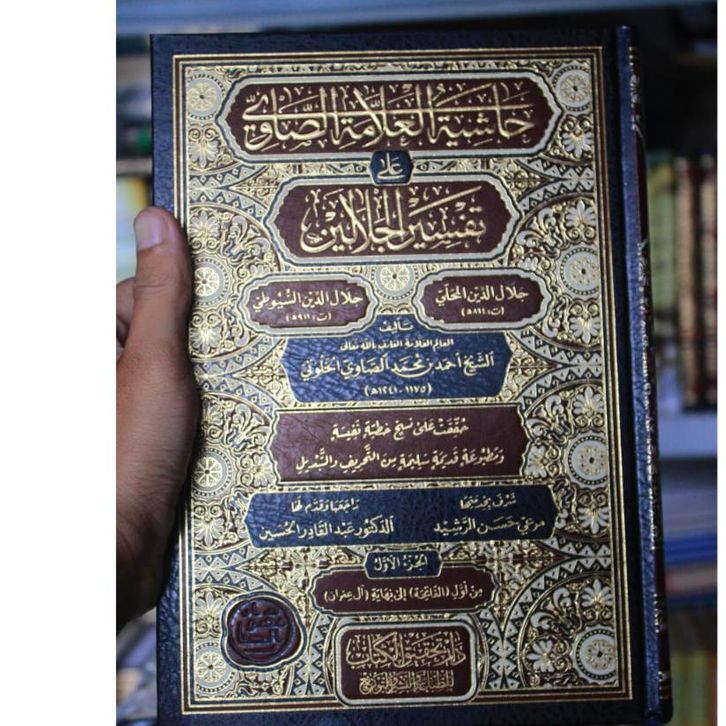 حاشية العلامة الصاوي
على
تفسير الجلالين
جلال الدين المحلي
(ت: ٨٦٤ هـ)
جلال الدين السيوطي
(ت: ٩١١ هـ)
تأليف
العالم العلامة العارف بالله تعالى
الشيخ أحمد بن محمد الصاوي الخلوتي
(١١٧٥-١٢٤١هـ)
حققت على نسخ خطية نفيسة
ومطبوعة قديمة سليمة من التحريف والتبديل
تشرف بخدمتها
مرعي حسن الرشيد
راجعها وقدم لها
الدكتور عبد القادر الحسين
الجزء الأول
من أول (الفاتحة) إلى نهاية (آل عمران)
دار تحقيق الكتاب
للطباعة والنشر والتوزيع